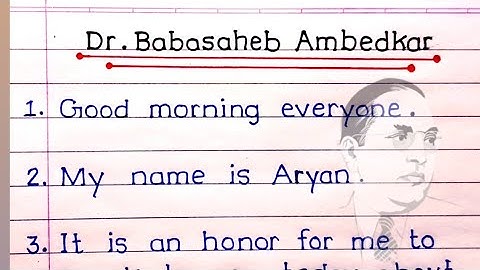 Dr. Babasaheb Ambedkar
1. Good morning everyone.
2. My name is Aryan.
3. It is an honor for me to
today about